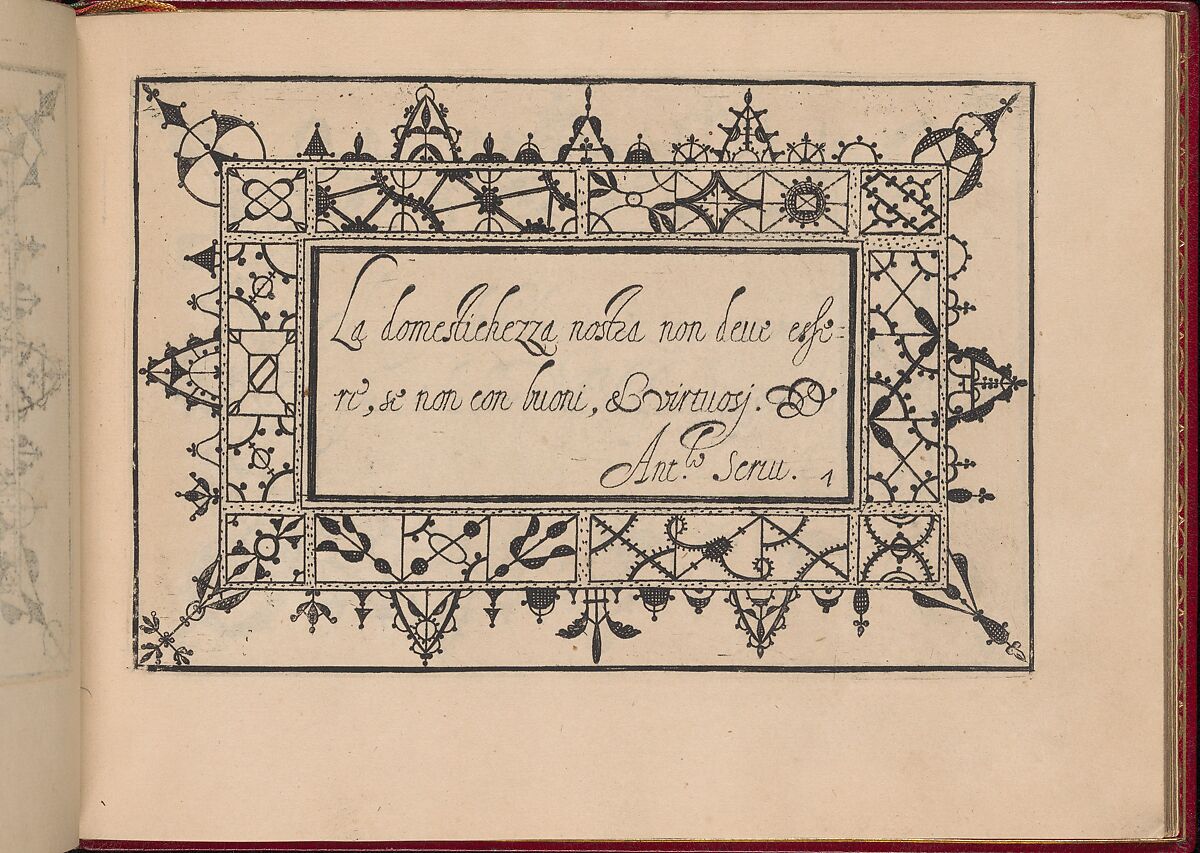 La domestichezza nostra non deue esse=
re, se non con buoni, & virtuosj.
Ant.us Scriu. 1